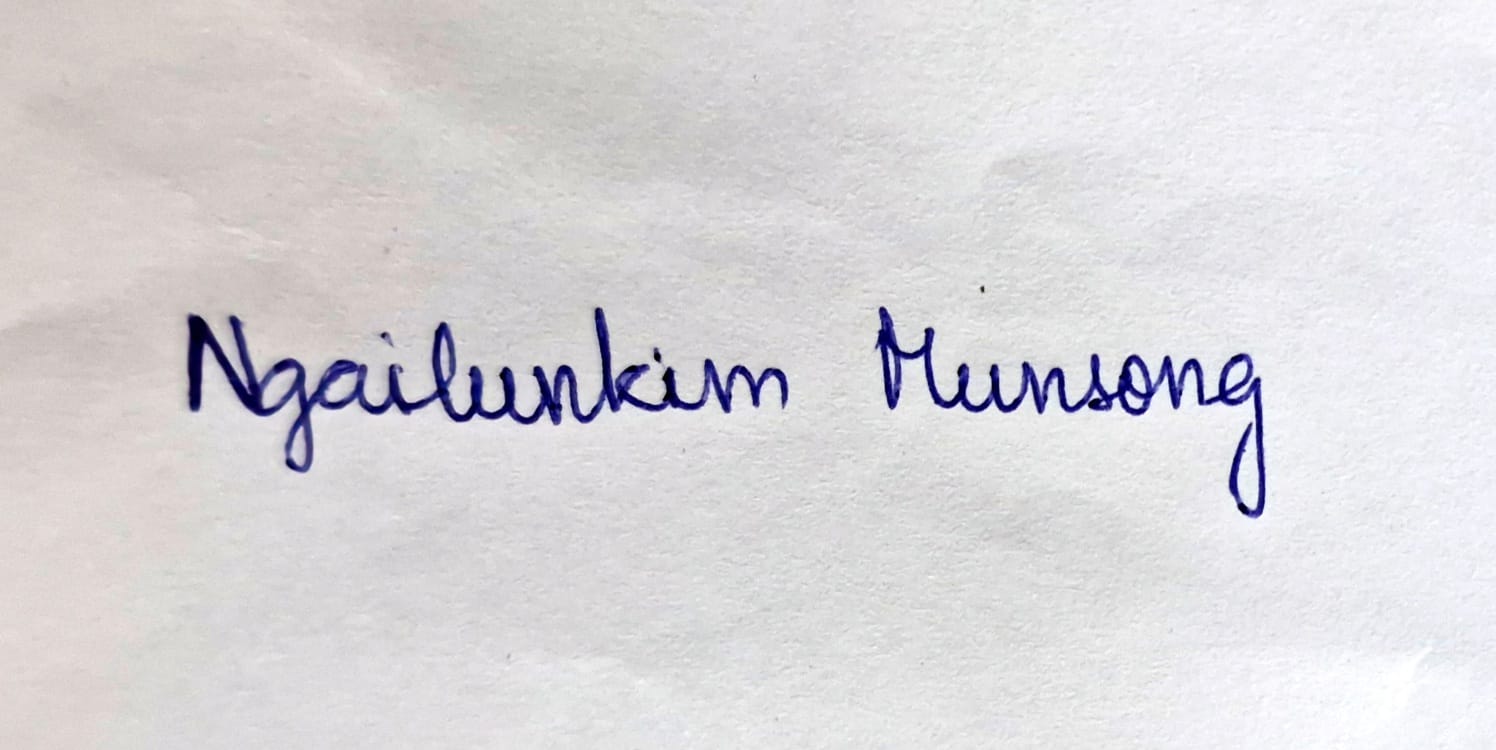 Ngailunkim Munsong